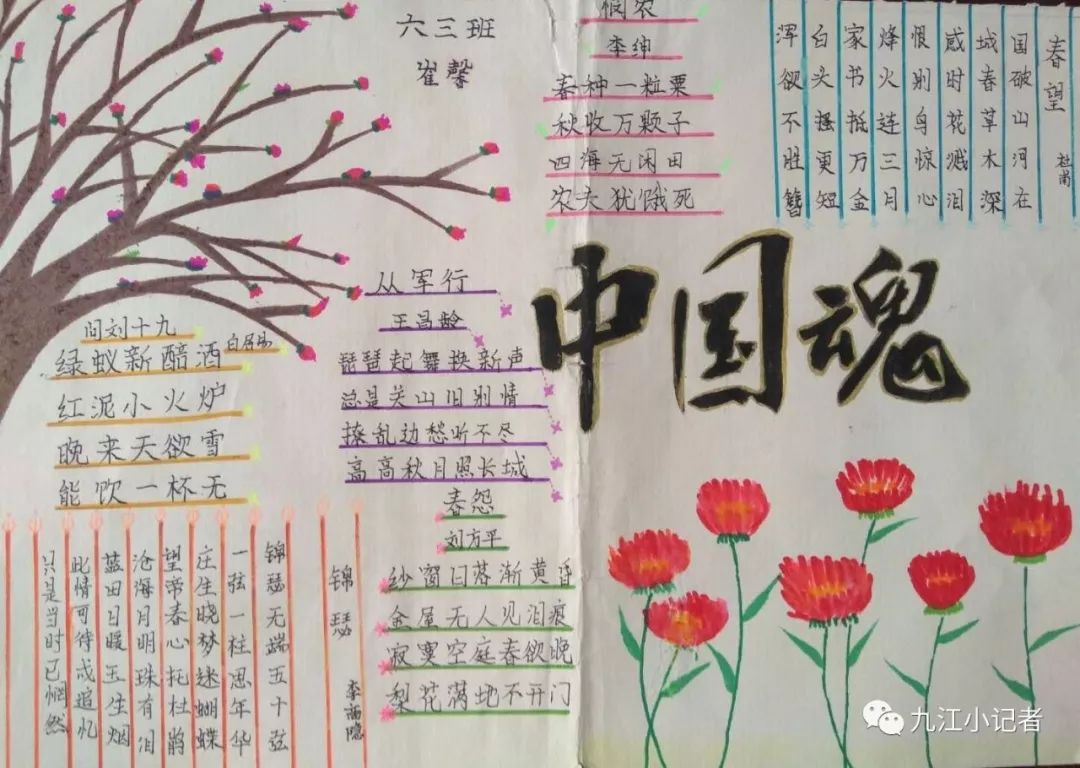 六三班
崔馨
悯农
李绅
春种一粒粟
秋收万颗子
四海无闲田
农夫犹饿死
春望
杜甫
国破山河在
城春草木深
感时花溅泪
恨别鸟惊心
烽火连三月
家书抵万金
白头搔更短
浑欲不胜簪
中国魂
问刘十九
白居易
绿蚁新醅酒
红泥小火炉
晚来天欲雪
能饮一杯无
从军行
王昌龄
琵琶起舞换新声
总是关山旧别情
撩乱边愁听不尽
高高秋月照长城
春怨
刘方平
纱窗日落渐黄昏
金屋无人见泪痕
寂寞空庭春欲晚
梨花满地不开门
锦瑟
李商隐
锦瑟无端五十弦
一弦一柱思年华
庄生晓梦迷蝴蝶
望帝春心托杜鹃
沧海月明珠有泪
蓝田日暖玉生烟
此情可待成追忆
只是当时已惘然
九江小记者